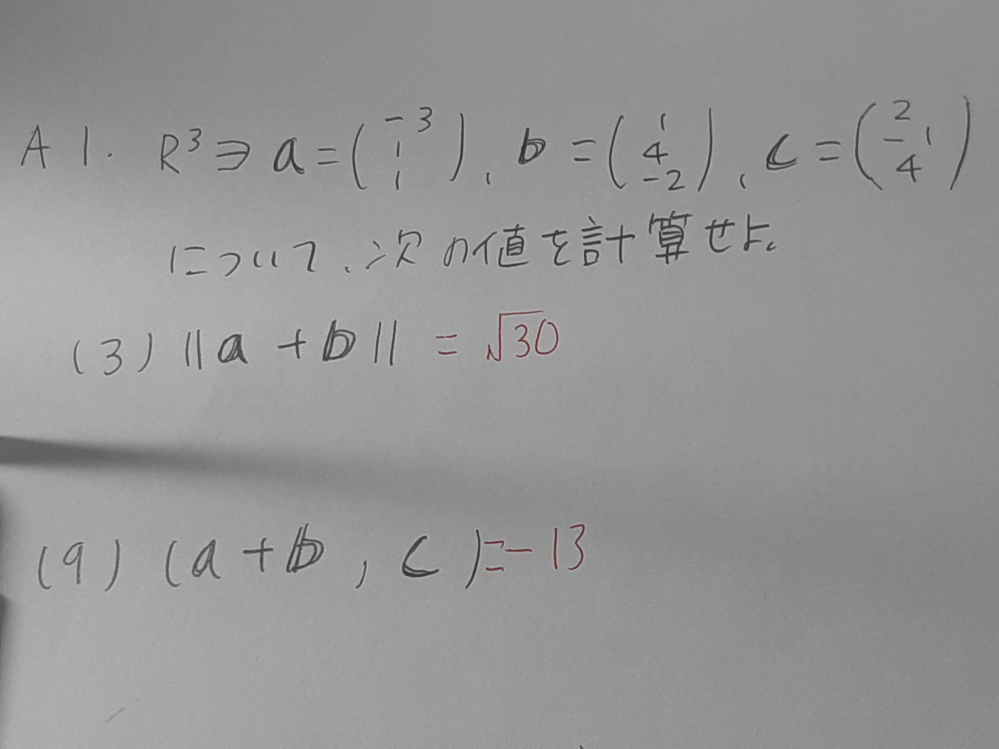 A 1. R³∋a=(-3 1 1), b=(1 4 -2), c=(2 -1 4)
について、次の値を計算せよ。
(3) ||a+b|| = √30
(9) (a+b, c)=-13